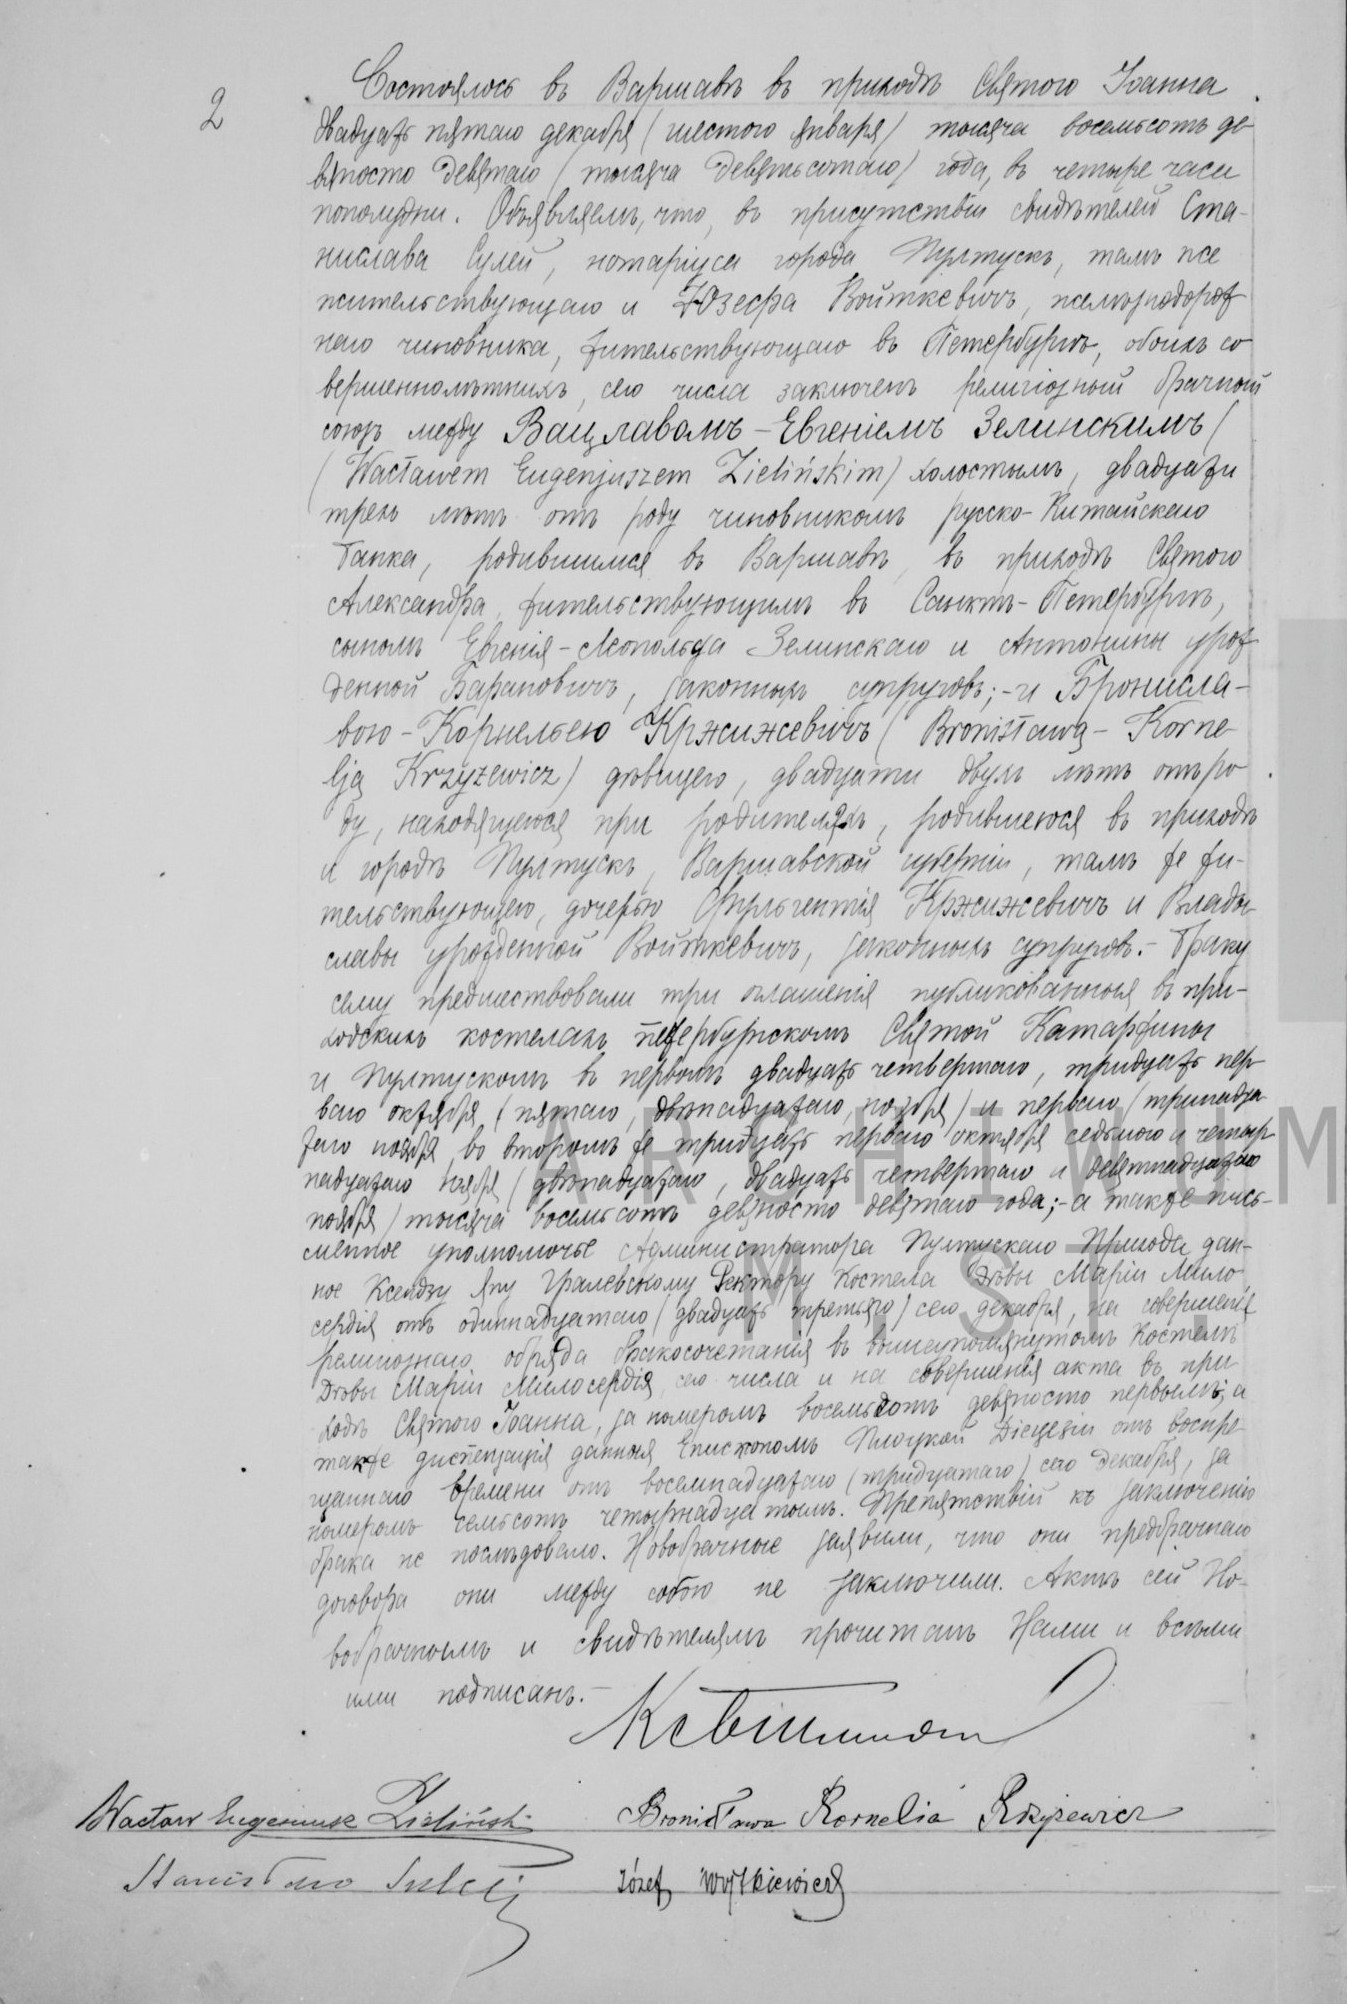 2
Состоялось въ Варшавѣ въ приходѣ Святого Іоанна
двадцать пятаго декабря (шестого января) тысяча восемьсотъ де-
вяносто девятаго (тысяча девятьсотаго) года, въ четыре часа
пополудни. Объявляемъ, что, въ присутствіи свидѣтелей Ста-
нислава Сулей, нотаріуса города Пултускъ, тамъ же
жительствующаго и Юзефа Войткевичъ, желѣзнодорож
наго чиновника, жительствующаго въ Петербургѣ, обоихъ со
вершеннолѣтнихъ, сего числа заключенъ религіозный брачный
союзъ между Вацлавомъ-Евгеніемъ Зелинскимъ (
(Wacławem Eugenjuszem Zielińskim) холостымъ, двадцати
трехъ лѣтъ отъ роду чиновникомъ русско-Китайскаго
банка, родившимся въ Варшавѣ, въ приходѣ Святого
Александра, жительствующимъ въ Санктъ-Петербургѣ,
сыномъ Евгенія-Леопольда Зелинскаго и Антонины урож
денной Барановичъ, законныхъ супруговъ;-и Бронисла-
вою-Корнельею Кржижевичъ (Bronisławą-Korne
lją Krzyżewicz) дѣвицею, двадцати двухъ лѣтъ отъ ро
ду, находящеюся при родителяхъ, родившеюся въ приходѣ
и городѣ Пултускъ, Варшавской губерніи, тамъ же жи-
тельствующею, дочерью Фульгентія Кржижевичъ и Влады
славы урожденной Войткевичъ, законныхъ супруговъ.- Браку
сему предшествовали три оглашенія публикованныя въ при-
ходскихъ костелахъ петербургскомъ Святой Катаржины
и Пултускомъ въ первомъ двадцать четвертаго, тридцать пер-
ваго октября (пятаго, двѣнадцатаго, ноября) и перваго (тринадца
таго ноября во второмъ же тридцать перваго октября седьмого и четыр
надцатаго ноября (двѣнадцатаго, двадцать четвертаго и девятнадцатаго
ноября) тысяча восемьсотъ девяносто девятаго года;-а также пись-
менное уполномочье Администратора Пултускаго Прихода, дан-
ное Ксендзу Яну Гралевскому Ректору Костела Дѣвы Маріи Мило
сердія отъ одиннадцатаго (двадцать третьяго) сего декабря, на совершеніе
религіознаго обряда бракосочетанія въ вышеупомянутомъ Костелѣ
Дѣвы Маріи Милосердія, сего числа и на совершенія акта въ при
ходѣ Святого Іоанна, за номеромъ восемьсотъ девяносто первымъ; а
также диспензація данная Епископомъ Плоцкой Діецезіи отъ воспре-
щаннаго времени отъ восемнадцатаго (тридцатаго) сего декабря, за
номеромъ семьсотъ четырнадцатымъ. Препятствій къ заключенію
брака не послѣдовало. Новобрачные заявили, что они предбрачнаго
договора они между собою не заключили. Актъ сей Но-
вобрачнымъ и свидѣтелямъ прочитанъ Нами и всѣми
ими подписанъ.-
Wacław Eugeniusz Zieliński
Bronisława Kornelia Krzyżewicz
Stanisław Sulej
Józef Wojtkiewicz
ARCHIWUM
M. ST.